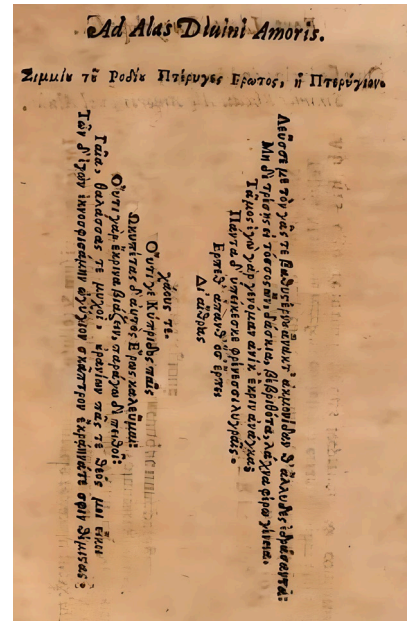 Ad Alas Diuini Amoris.
Σιμμίου τοῦ Ροδίου Πτέρυγες Ερωτος, ἢ Πτερύγιον.
Λεῦσσέ με τὸν γᾶς τε βαθυστέρνου ἄνακτ' ἀκμονίδαν θ' ἄλλυδις ἑδράσαντα:
Μηδὲ τρέσῃς εἰ τόσσος ὢν, δάσκια, βεβριθότα, λάχνα φέρω γένεια.
Τᾶμος ἐγὼ γὰρ γενόμαν ἁνίκ' ἔκριν' ἀνάγκα
Πάντα δ' ὑπείκεσκε φρίνεσσι λυγραῖς.
Ερπεθ' ἅπανθ' ὅσ' ἕρπει
Δι' αἴθρας
χάους τε.
Οὔτι γε Κύπριδος παῖς
Ωκυπέτας δ' αὐτὸς Ερως καλεῦμαι
Οὔτι γὰρ ἔκρινα βιάζειν, παράγω δὲ πειθοῖ:
Γαῖα, θαλάσσας τε μυχοὶ, οὐρανίων πᾶς τε θεός μοι εἴκει
Τῶν δ' ἐγὼν ἐκνοσφισάμην ὠγύγιον σκᾶπτρον ἐκραινᾶτε σφιν θέμιστας.